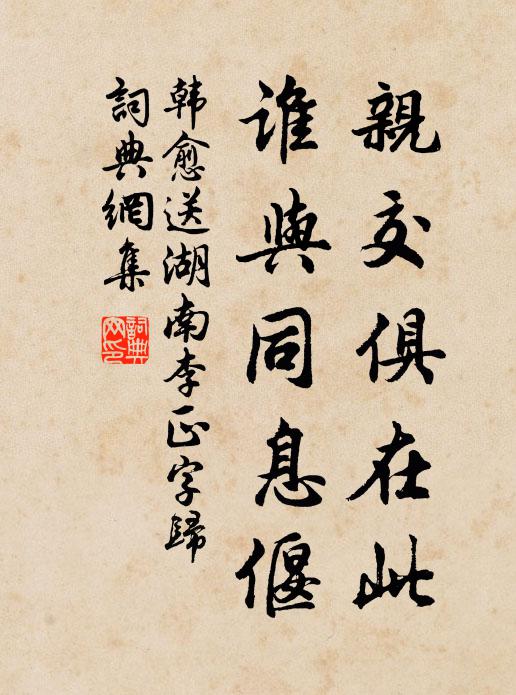 親交俱在此
谁與同息偃
韩愈送湖南李正字歸
詞典網集
詞典网印